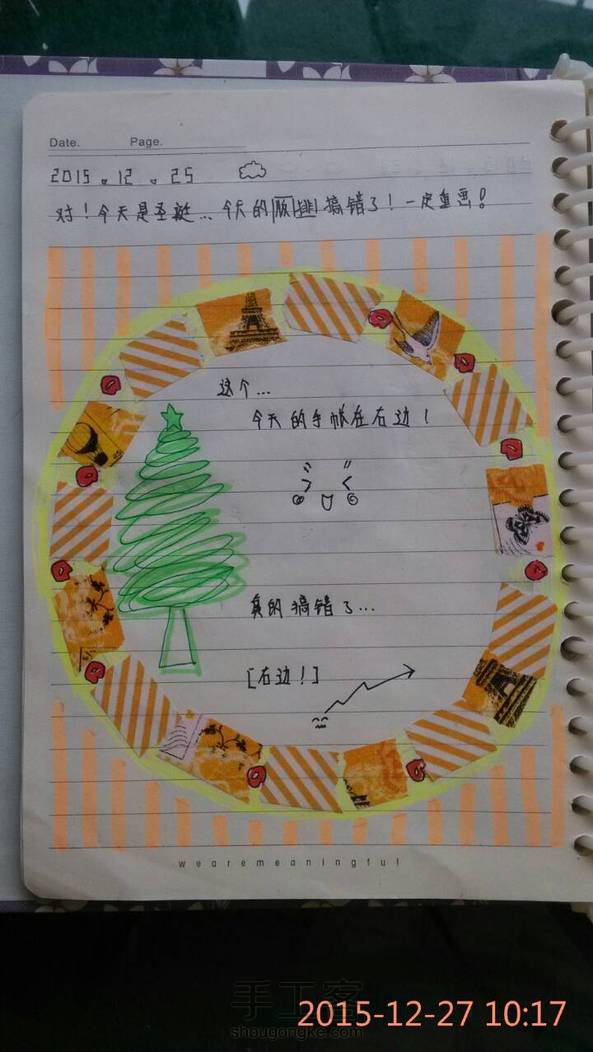 Date. Page.
2015.12.25
对！今天是圣诞…今天的版排搞错了！一定重画！
这个…
今天的手帐在右边！
真的搞错了…
[右边！]
wearemeaningful
手工客
2015-12-27 10:17
shougongke.com